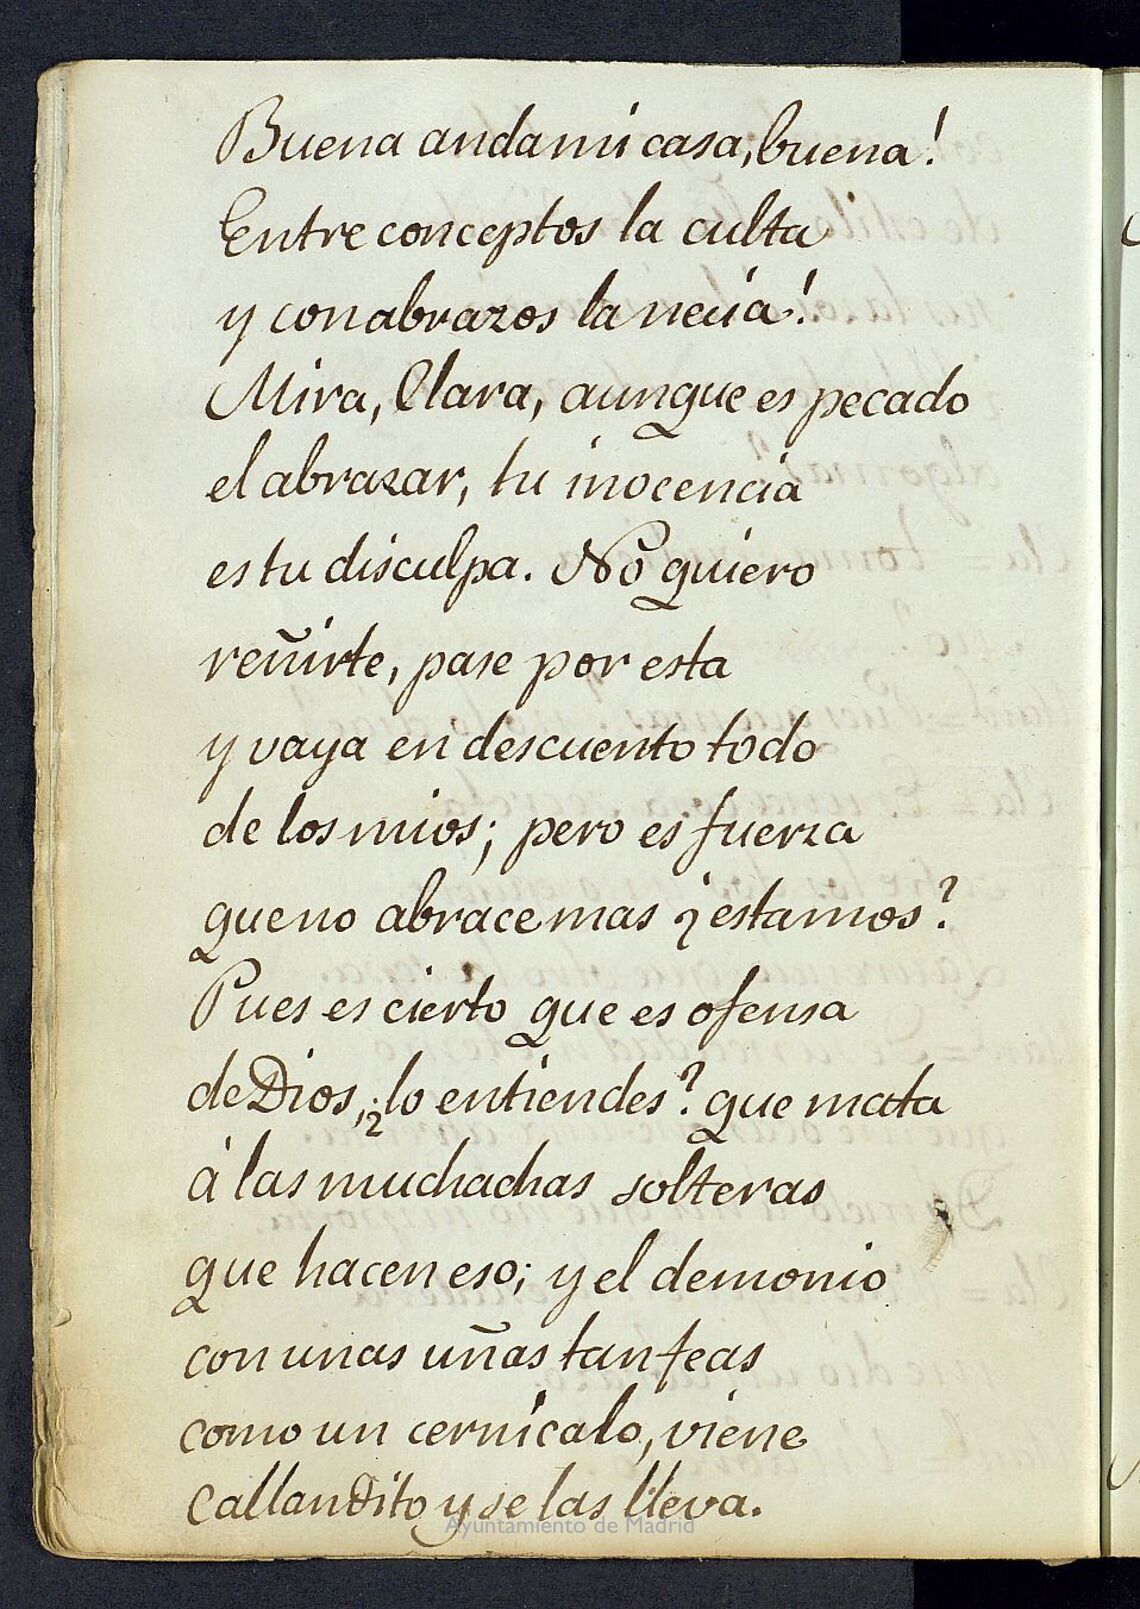 Buena anda mi casa, buena!
Entre conceptos la culta
y con abrazos la necia!
Mira, Clara, aunque es pecado
el abrazar, tu inocencia
es tu disculpa. No quiero
reñirte, pase por esta
y vaya en descuento todo
de los mios; pero es fuerza
que no abrace mas ¿estamos?
Pues es cierto que es ofensa
de Dios, ¿lo entiendes? que mata
á las muchachas solteras
que hacen eso; y el demonio
con unas uñas tan feas
como un cernícalo, viene
callandito y se las lleva.
Ayuntamiento de Madrid